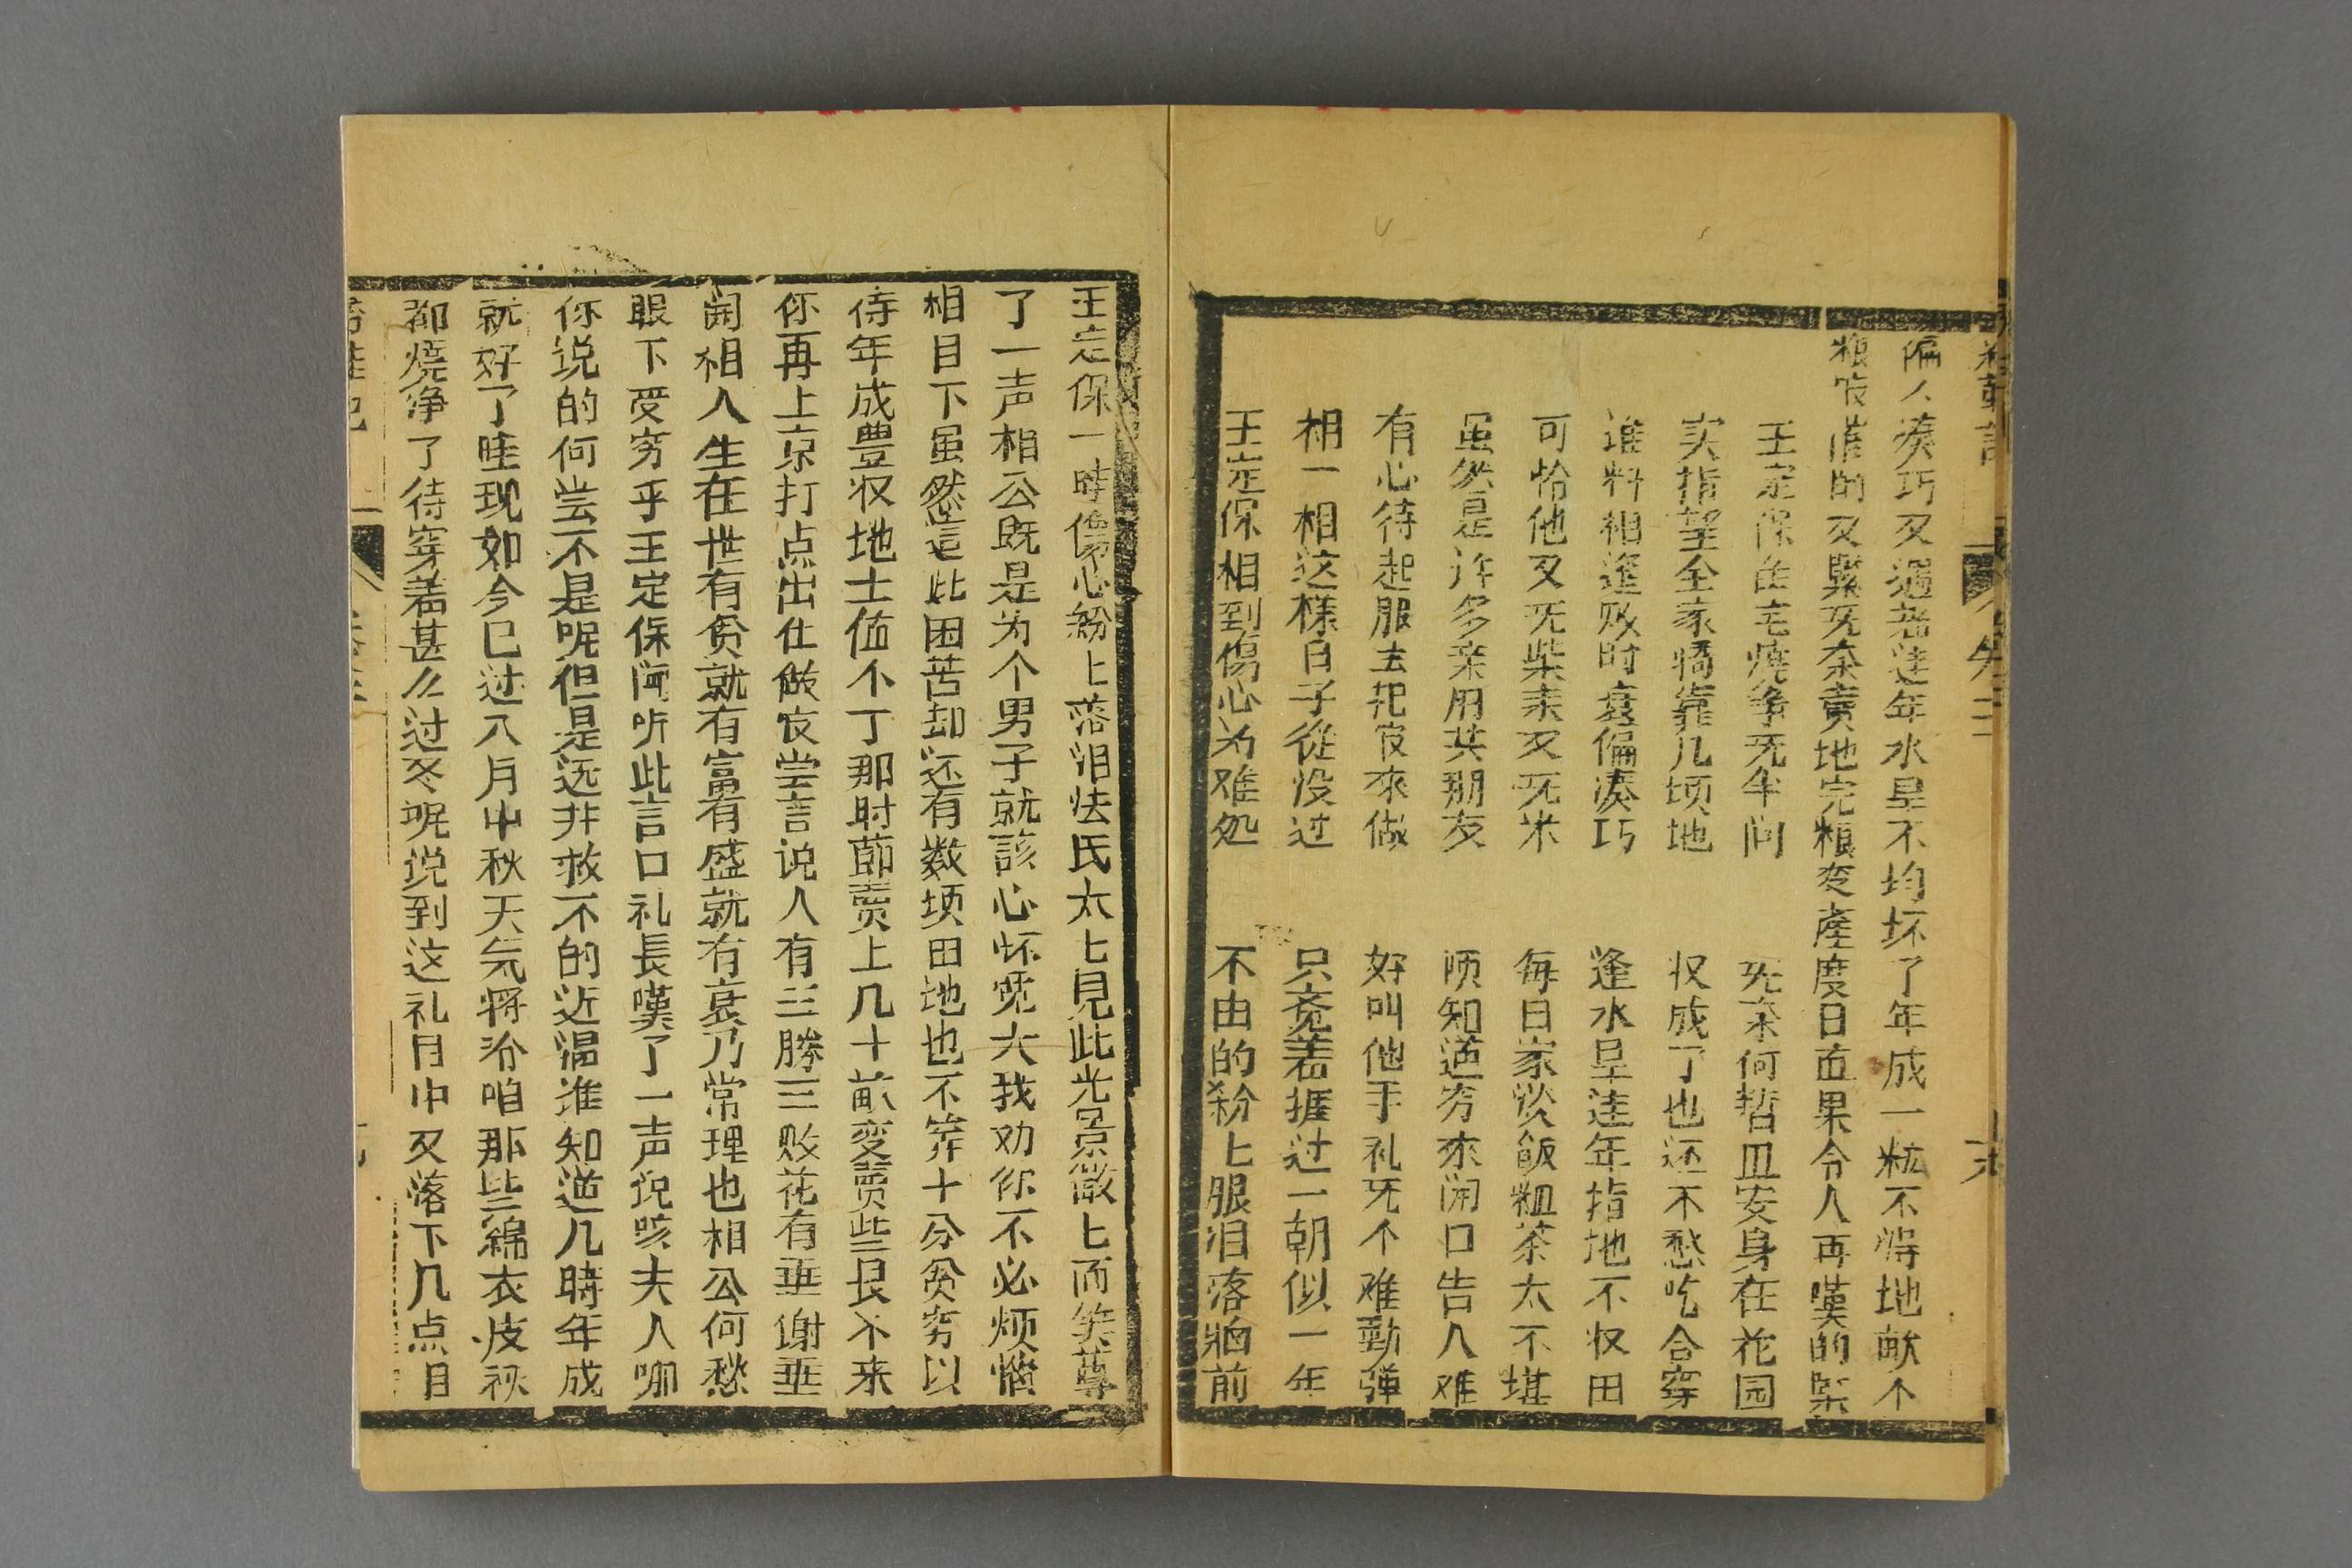 偏人凑巧又遇着连年水旱不均坏了年成一粒不得地畝不
粮吱催的又緊旡奈賣地完粮变產度日直果令人再嘆的緊
王定保住宅燒爭旡半间　旡奈何暂且安身在花园
实指望全家犒靠几顷地　収成了也还不愁吃合穿
谁料相逢败时衰偏凑巧　逢水旱连年指地不収田
可恰他又旡柴来又旡米　每日家淡飯粗茶太不堪
虽然是许多亲用共朋友　须知道穷來開口告人难
有心待起服去把官來做　好叫他手礼旡个难動弹
相一相这樣日子從没过　只竞着捱过一朝似一年
王定保相到傷心为难处　不由的粉上眼泪落牺前
王定保一時傷心紛上落泪怯氏太七見此光景微上而笑尊
了一声相公既是为个男子就該心怀宽大我劝你不必烦惱
相目下虽然這此困苦却还有数顷田地也不算十分贫穷以
待年成豊収地士值个丁那时節賣上几十畝变賣些艮不来
你再上京打点出仕做官尝言说人有三勝三败花有垂谢垂
開相人生在世有貧就有富有盛就有衰乃常理也相公何愁
眼下受穷乎王定保闻听此言口礼長嘆了一声说咳夫人哪
你说的何尝不是呢但是远井救不的近渴谁知道几時年成
就好了哇现如今已过八月中秋天气将冷咱那些綿衣皮袄
都燒净了待穿着甚么过冬呢说到这礼目中又落下几点目